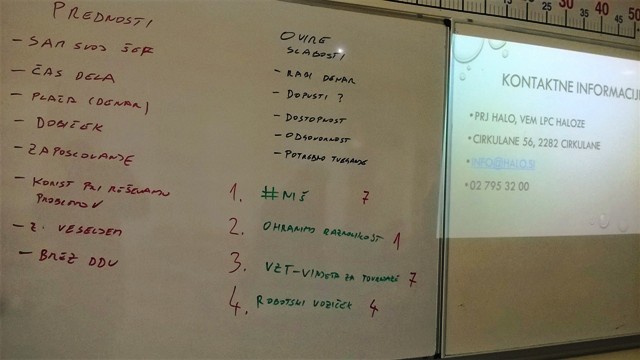 PREDNOSTI
- SAM SVOJ ŠEF
- ČAS DELA
- PLAČA (DENAR)
- DOBIČEK
- ZAPOSLOVANJE
- KORIST PRI REŠEVANJU
PROBLEMOV
- Z VESELJEM
- BREZ DDV
OVIRE
SLABOSTI
- RABI DENAR
- DOPUSTI ?
- DOSTOPNOST
- ODGOVORNOST
- POTREBNO TVEGANJE
1. #NIŠ 7
2. OHRANIMO RAZNOLIKOST 1
3. VZT-VINJETA ZA TOVORNJAKE 7
4. ROBOTSKI VOZIČEK 4
KONTAKTNE INFORMACIJE
• PRJ HALO, VEM LPC HALOZE
• CIRKULANE 56, 2282 CIRKULANE
• INFO@HALO.SI
• 02 795 32 00
30 40 50
25 30 35 40 45